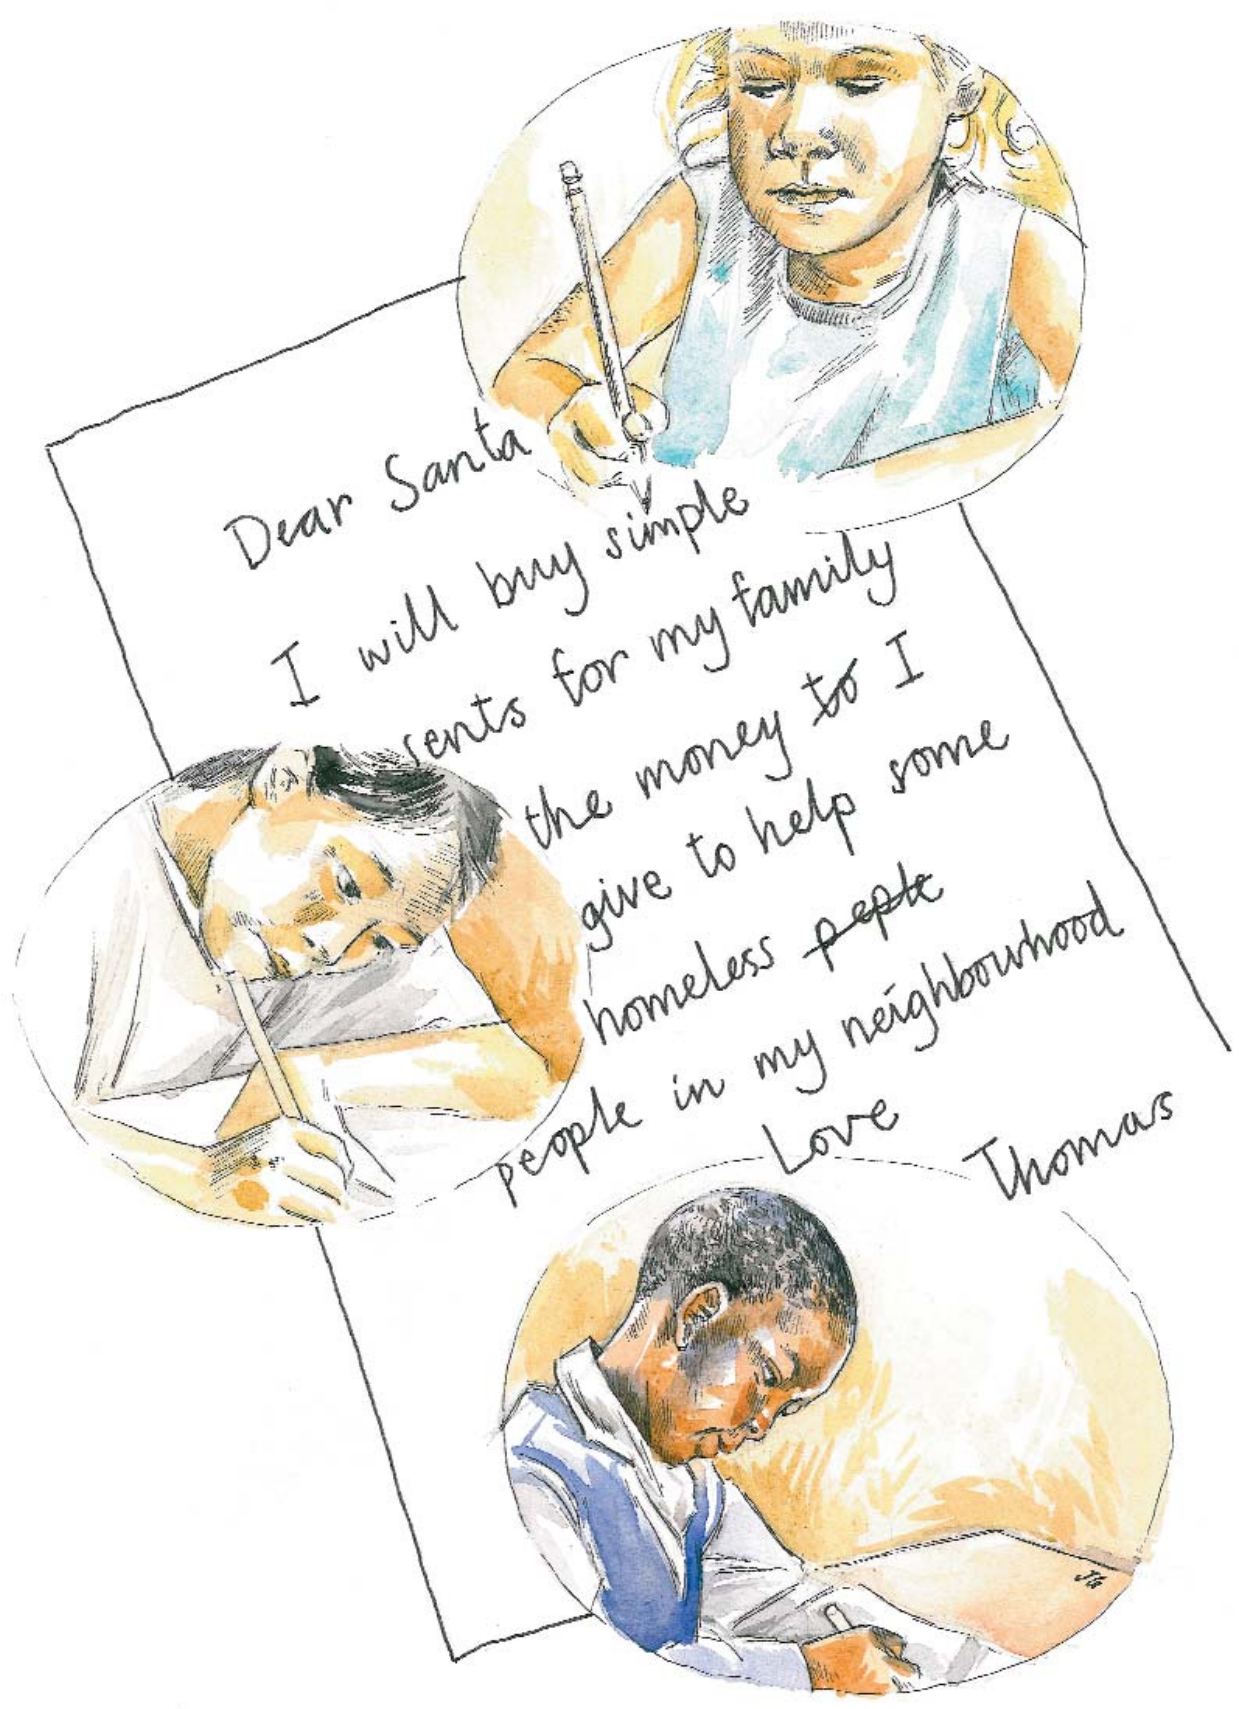 Dear Santa
I will buy simple
sents for my family
the money to I
give to help some
homeless peple
people in my neighbourhood
Love
Thomas
JG